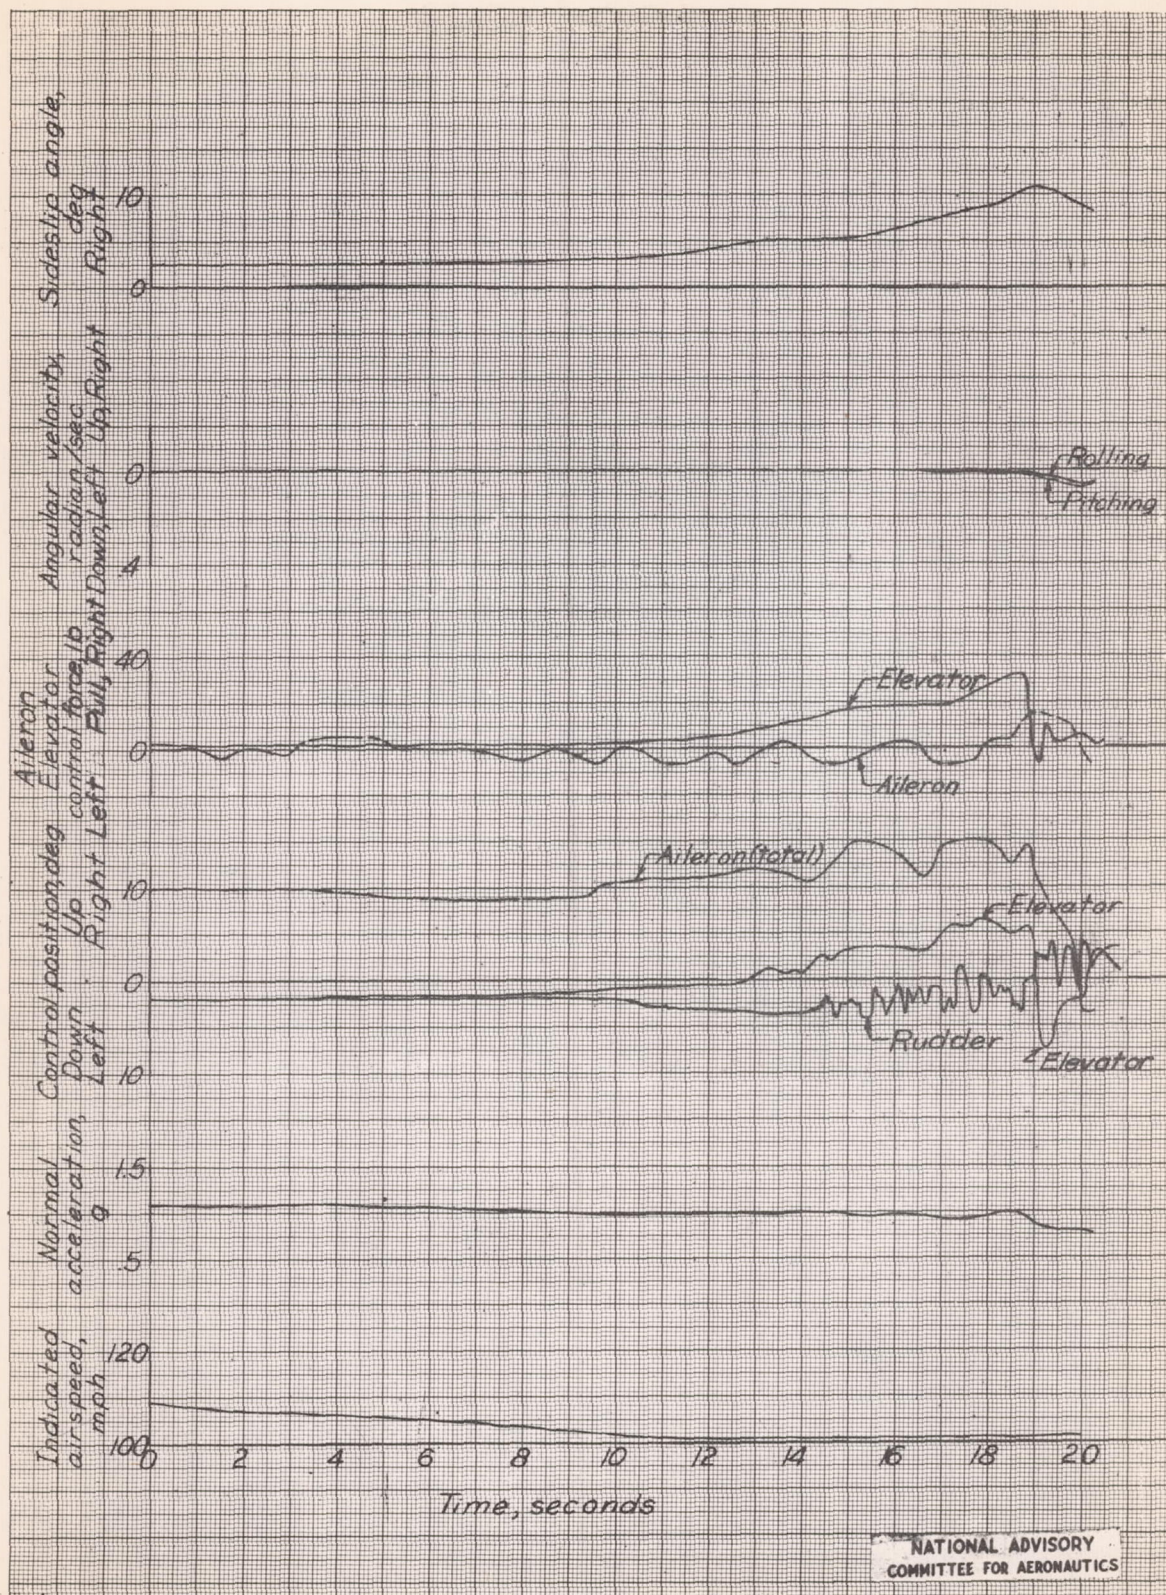 Sideslip angle,
deg
Right
10
0
Angular velocity,
radian/sec
Down, Left Up, Right
0
.4
Rolling
Pitching
Aileron
Elevator
control force, lb
Pull, Right
Left
40
0
Elevator
Aileron
Control position, deg
Down Up
Left Right
10
0
10
Aileron (total)
Elevator
Rudder
Elevator
Normal
acceleration,
g
1.5
.5
Indicated
airspeed,
mph
120
100
0 2 4 6 8 10 12 14 16 18 20
Time, seconds
NATIONAL ADVISORY
COMMITTEE FOR AERONAUTICS